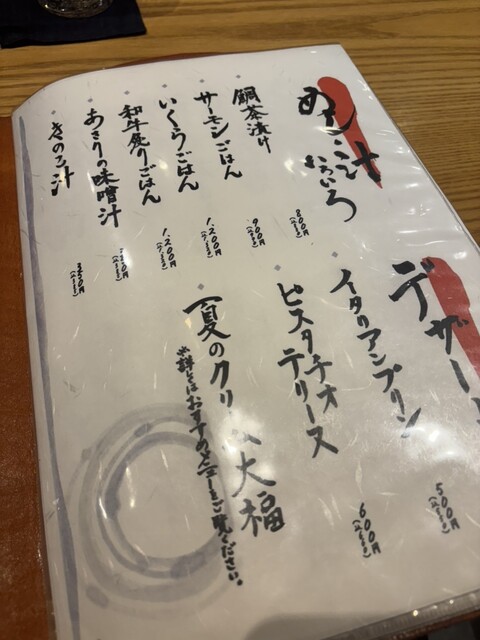 めし・汁
いろいろ
鯛茶漬け
800円
サーモンごはん
900円
いくらごはん
1,200円
和牛炙りごはん
1,200円
あさりの味噌汁
きのこ汁
デザー
イタリアンプリン
500円
ピスタチオ
テリーヌ
600円
夏のクリーム大福
※詳しくはおすすめメニューをご覧ください。